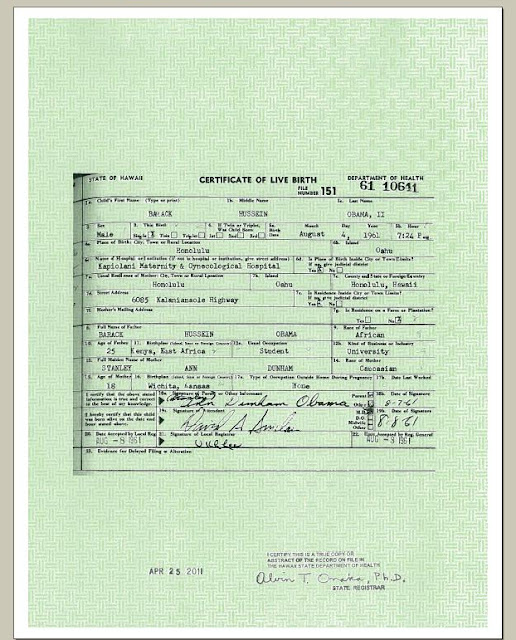 STATE OF HAWAII CERTIFICATE OF LIVE BIRTH DEPARTMENT OF HEALTH
FILE NUMBER 151 61 10641
1a. Child's First Name (Type or print) 1b. Middle Name 1c. Last Name
BARACK HUSSEIN OBAMA, II
2. Sex 3. This Birth 4. If Twin or Triplet, Was Child Born 5a. Birth Date Month Day Year 5b. Hour
Male Single Twin Triplet 1st 2nd 3rd August 4, 1961 7:24 P.
6a. Place of Birth: City, Town or Rural Location 6b. Island
Honolulu Oahu
6c. Name of Hospital or Institution (If not in hospital or institution, give street address) 6d. Is Place of Birth Inside City or Town Limits? If no, give judicial district
Kapiolani Maternity & Gynecological Hospital Yes No
7a. Usual Residence of Mother: City, Town or Rural Location 7b. Island 7c. County and State or Foreign Country
Honolulu Oahu Honolulu, Hawaii
7d. Street Address 7e. Is Residence Inside City or Town Limits? If no, give judicial district
6085 Kalanianaole Highway Yes No
7f. Mother's Mailing Address 7g. Is Residence on a Farm or Plantation?
Yes No
8. Full Name of Father 9. Race of Father
BARACK HUSSEIN OBAMA African
10. Age of Father 11. Birthplace 12a. Usual Occupation 12b. Kind of Business or Industry
25 Kenya, East Africa Student University
13. Full Maiden Name of Mother 14. Race of Mother
STANLEY ANN DUNHAM Caucasian
15. Age of Mother 16. Birthplace 17a. Type of Occupation Outside Home During Pregnancy 17b. Date Last Worked
18 Wichita, Kansas None
I certify that the above stated information is true and correct to the best of my knowledge. 18a. Signature of Parent or Other Informant Parent Other 18b. Date of Signature
Ann Dunham Obama 8-7-61
I hereby certify that this child was born alive on the date and hour stated above. 19a. Signature of Attendant M.D. D.O. Midwife Other 19b. Date of Signature
David A Sinclair 8-8-61
20. Date Accepted by Local Reg. 21. Signature of Local Registrar 22. Date Accepted by Reg. General
AUG -8 1961 AUG -8 1961
23. Evidence for Delayed Filing or Alteration
APR 25 2011
I CERTIFY THIS IS A TRUE COPY OR
ABSTRACT OF THE RECORD ON FILE IN
THE HAWAII STATE DEPARTMENT OF HEALTH
Alvin T. Onaka, Ph.D.
STATE REGISTRAR